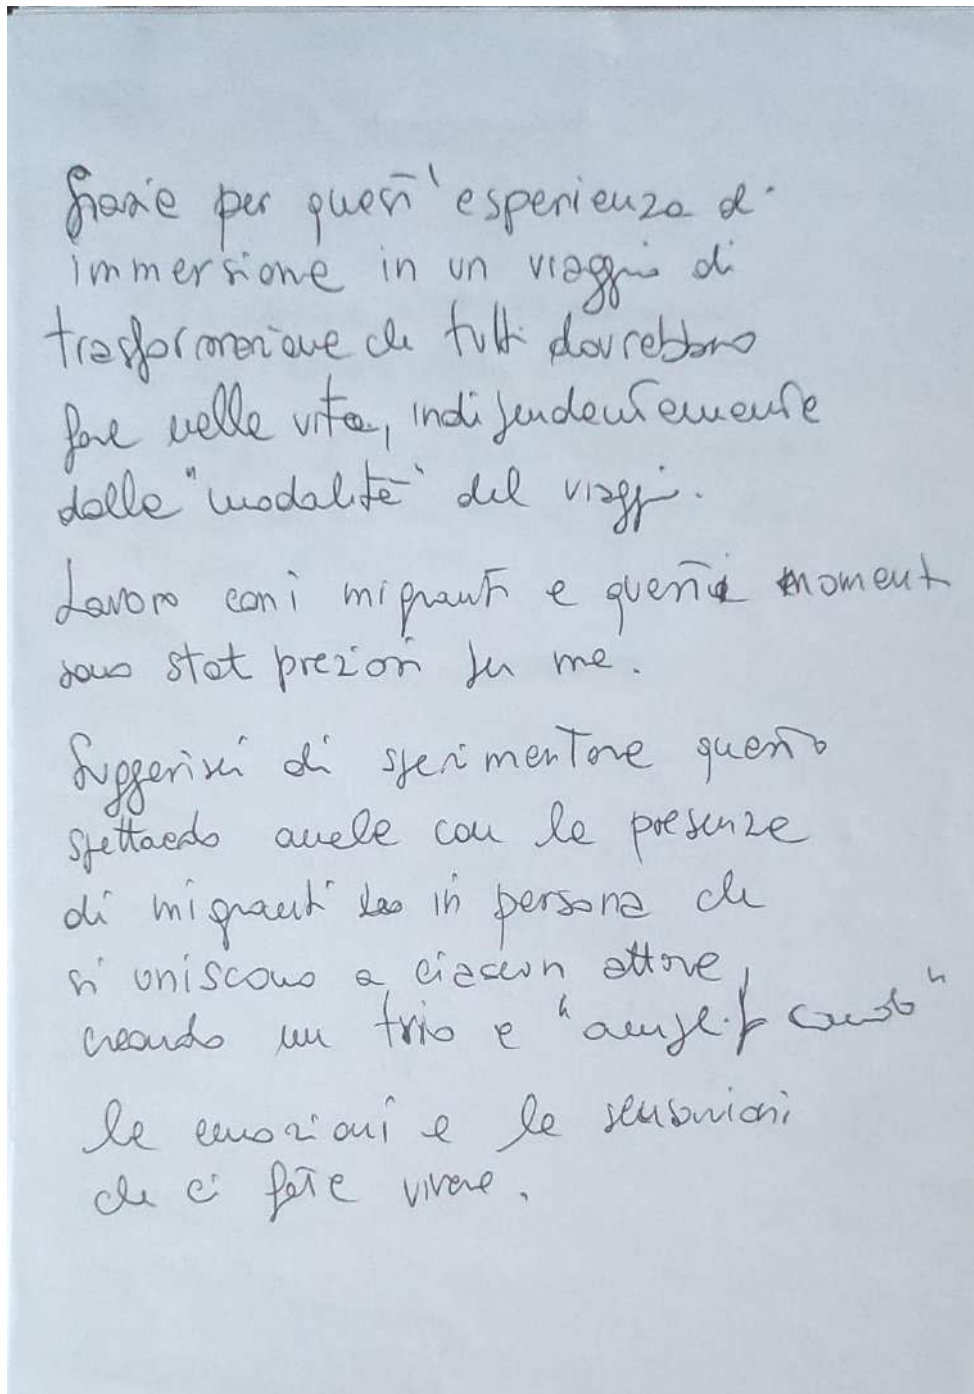 Grazie per quest'esperienza di
immersione in un viaggio di
trasformazione che tutti dovrebbero
fare nella vita, indipendentemente
dalla "modalità" del viaggio.
Lavoro con i migranti e questi momenti
sono stati preziosi per me.
Suggerisci di sperimentare questo
spettacolo anche con la presenza
di migranti in persona che
si uniscono a ciascun attore,
creando un trio e "amplificando"
le emozioni e le sensazioni
che ci fate vivere.